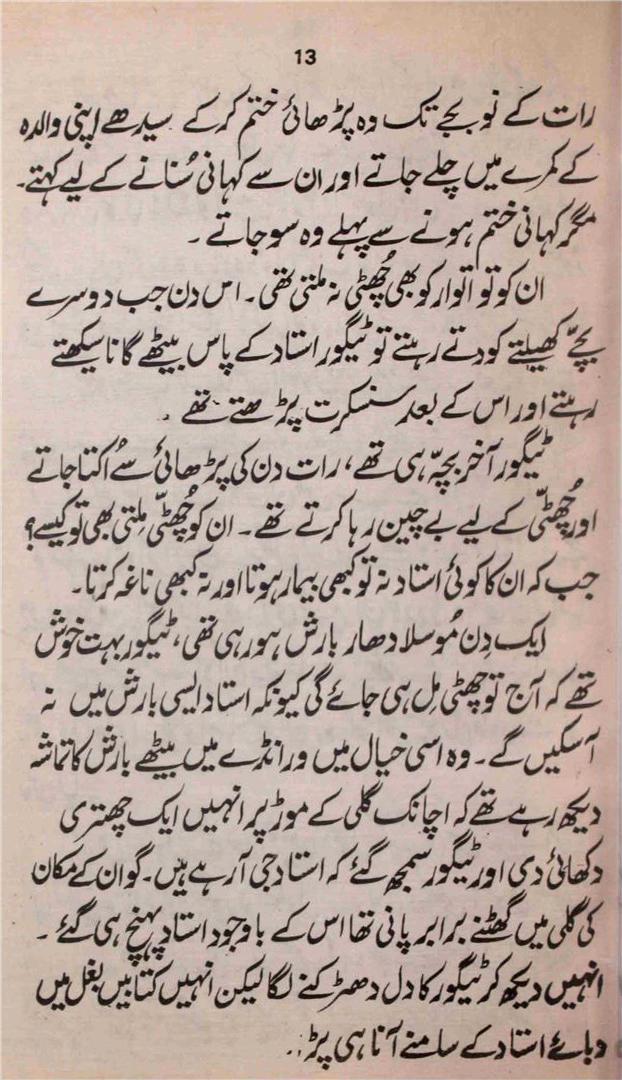 13
رات کے نو بجے تک وہ پڑھائی ختم کر کے سیدھے اپنی والدہ
کے کمرے میں چلے جاتے اور ان سے کہانی سُنانے کے لیے کہتے۔
مگر کہانی ختم ہونے سے پہلے وہ سو جاتے ۔
ان کو تو اتوار کو بھی چُھٹی نہ ملتی تھی۔ اس دن جب دوسرے
بچّے کھیلتے کودتے رہتے تو ٹیگور استاد کے پاس بیٹھے گانا سیکھتے
رہتے اور اس کے بعد سنسکرت پڑھتے تھے ۔
ٹیگور آخر بچّہ ہی تھے، رات دن کی پڑھائی سے اُکتا جاتے
اور چُھٹّی کے لیے بے چین رہا کرتے تھے۔ ان کو چُھٹّی مِلتی بھی تو کیسے؟
جب کہ ان کا کوئی استاد نہ تو کبھی بیمار ہوتا اور نہ کبھی ناغہ کرتا۔
ایک دِن مُوسلا دھار بارش ہو رہی تھی، ٹیگور بہت خوش
تھے کہ آج تو چھٹی مِل ہی جائے گی کیونکہ استاد ایسی بارش میں نہ
آسکیں گے۔ وہ اسی خیال میں ورانڈے میں بیٹھے بارش کا تماشہ
دیکھ رہے تھے کہ اچانک گلی کے موڑ پر انہیں ایک چھتری
دکھائی دی اور ٹیگور سمجھ گئے کہ استاد جی آرہے ہیں۔ گو ان کے مکان
کی گلی میں گھٹنے برابر پانی تھا اس کے باوجود استاد پہنچ ہی گئے ۔
انہیں دیکھ کر ٹیگور کا دل دھڑکنے لگا لیکن انہیں کتابیں بغل میں
دبائے استاد کے سامنے آنا ہی پڑ